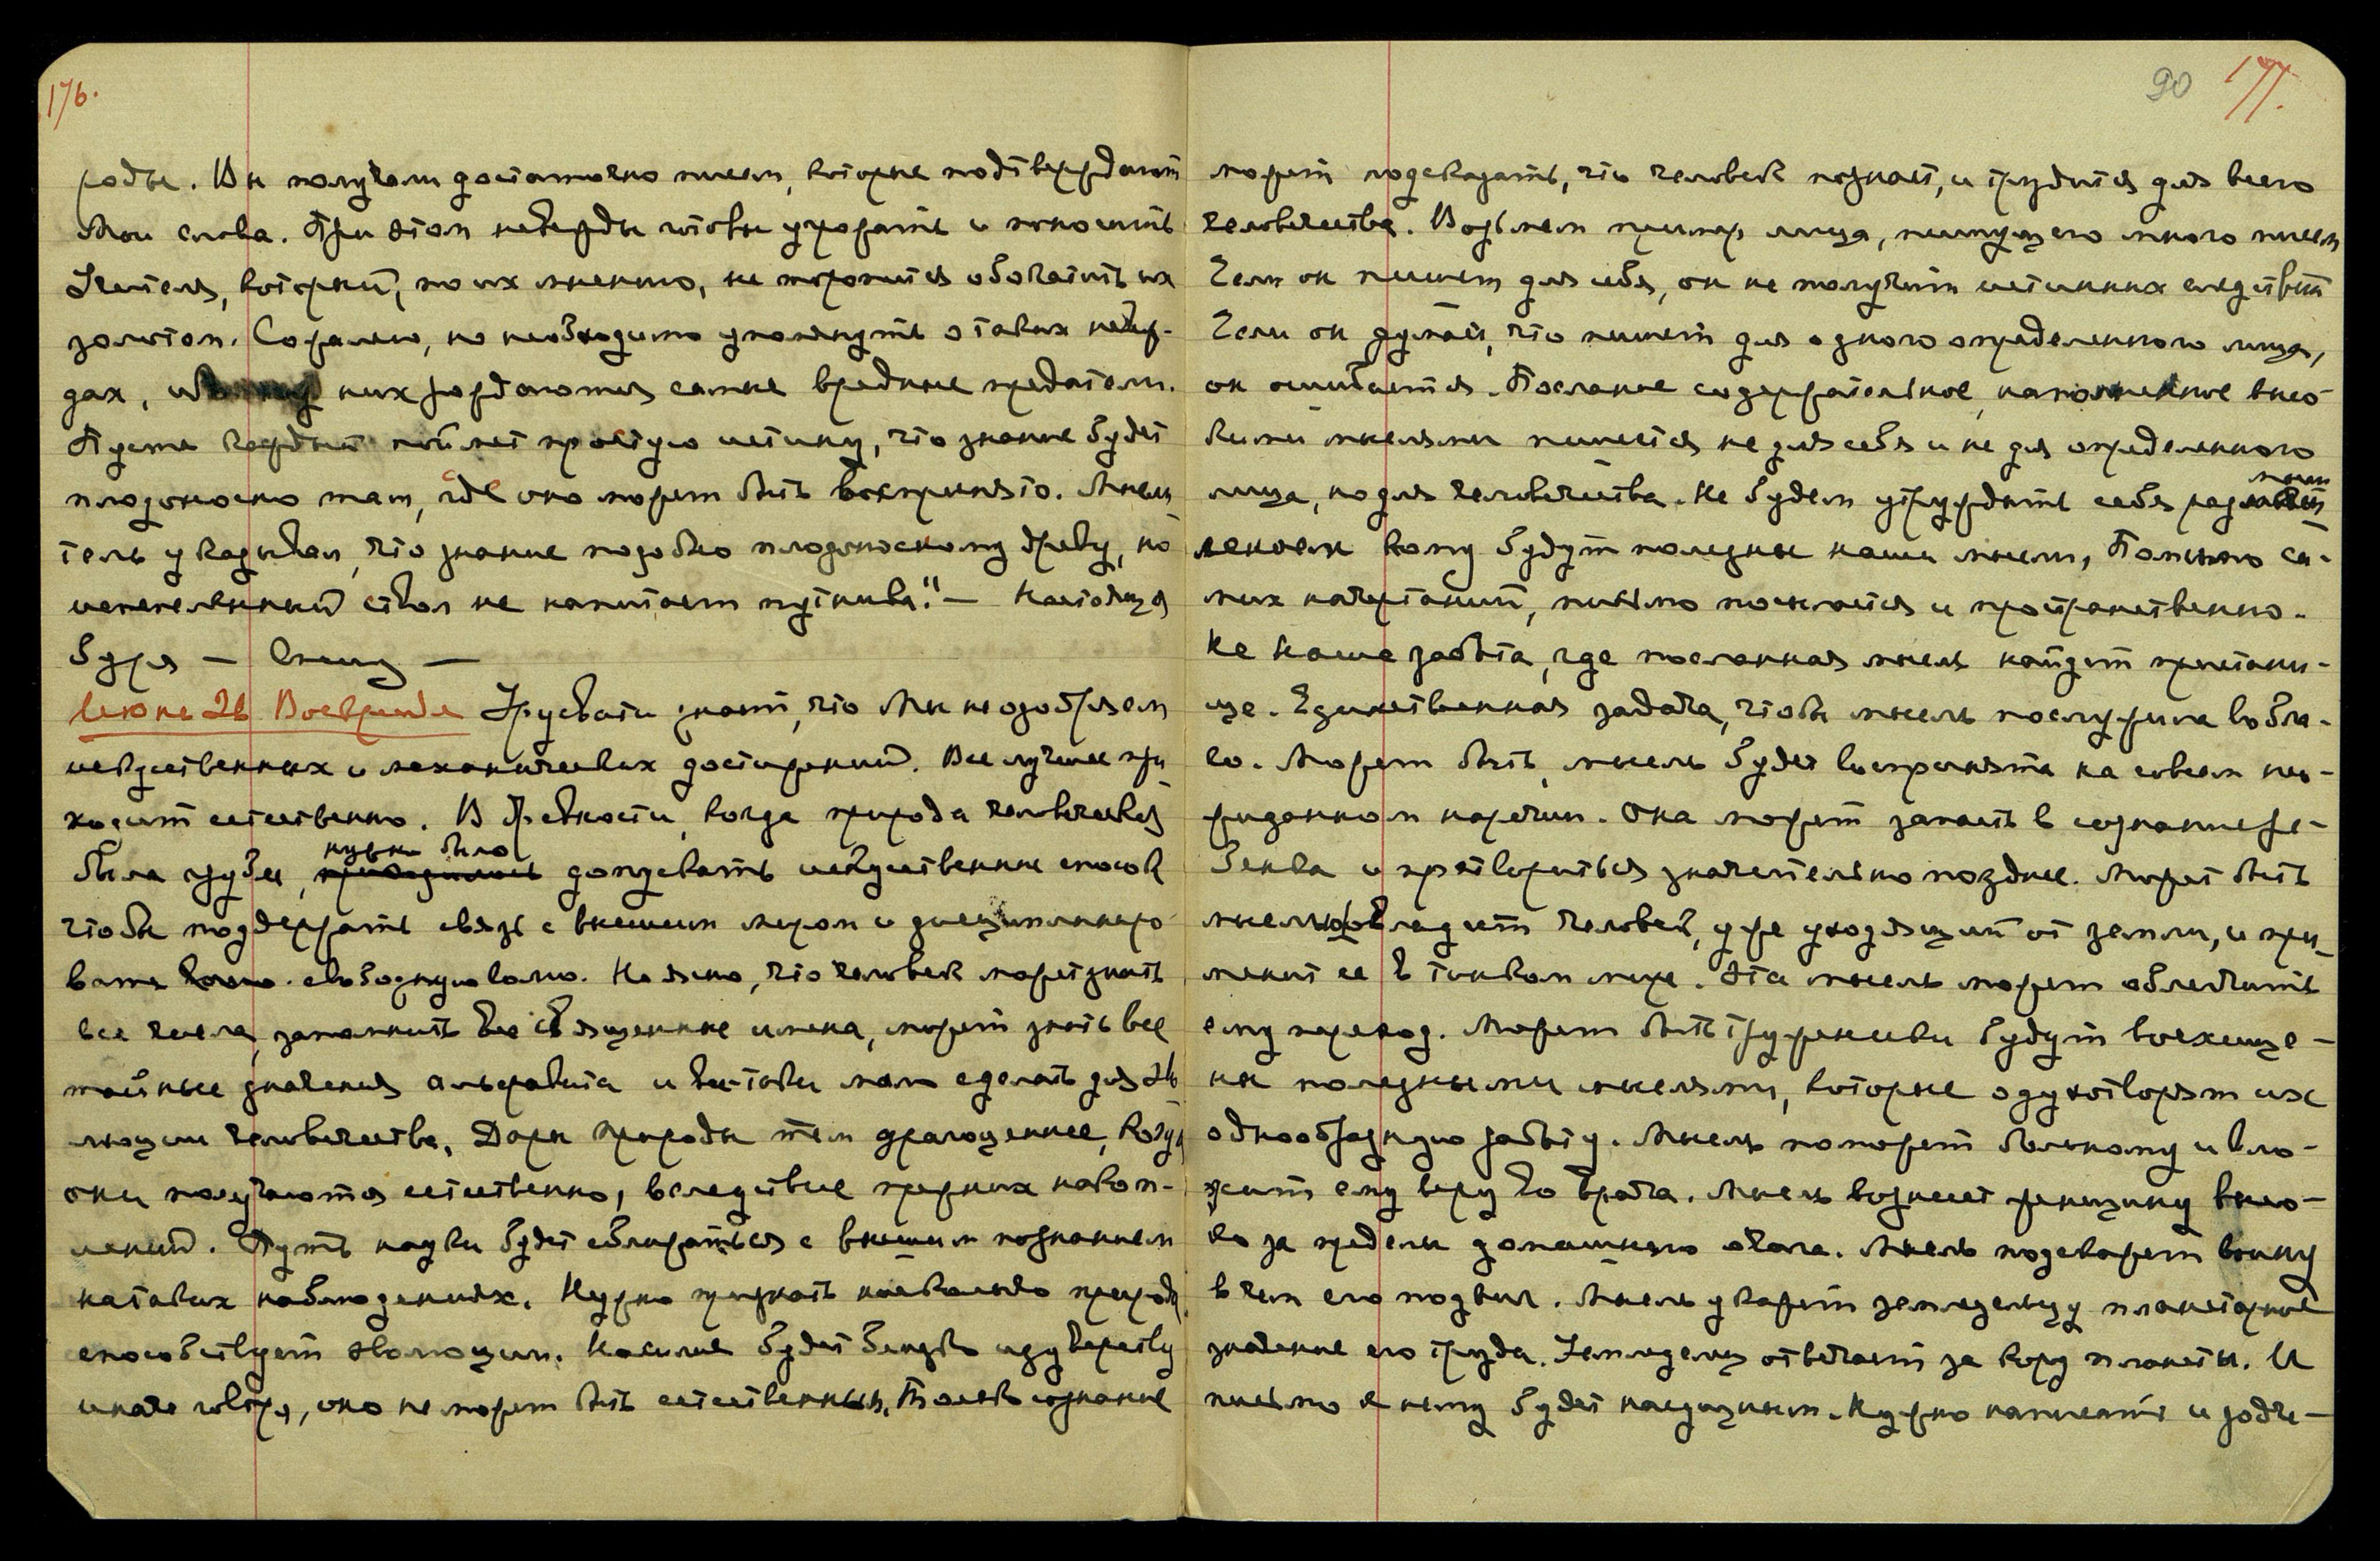 176.
роды. Вы получали достаточно писем, которые подтверждают
Мои слова. При этом невежды готовы угрожать и поносить
Учителя, который, по их мнению, не торопится обогатить их
золотом. Сожалею, но необходимо упомянуть о таких невеж-
дах, ибо из них рождаются самые вредные предатели.
Пусть каждый поймет простую истину, что знание будет
плодоносно там, где оно может быть воспринято. Мысли
тель указывал, что знание подобно плодоносному древу, но
испепеленный ствол не напитает путника." — Настоящая
Буря — Спешу —
Июнь 26 Воскрес. Урусвати знает, что Мы не одобряем
искусственных и механических достижений. Все лучшее при
ходит естественно. В древности, когда природа человеческая
нужно было
была грубее, приходилось допускать искусственные способы
чтобы поддержать связь с высшим миром и дисциплиниро
вать свободную волю. Но ясно, что человек может знать
все числа, запомнить все священные имена, может знать все
тайные значения алфавита и все-таки мало сделать для эво
люции человечества. Дары природы тем драгоценнее, когда
они получаются естественно, вследствие прежних накоп-
лений. Путь науки будет сближаться с высшим познанием
на таких наблюдениях. Нужно признать насколько природа
способствует эволюции. Насилие будет близко изуверству
иначе говоря, оно не может быть естественным. Только сознание
90 177.
может подсказать, что человек познает, и трудится для всего
человечества. Возьмем пример лица, пишущего много писем
Если он пишет для себя, он не получит истинных следствий
Если он думает, что пишет для одного определенного лица,
он ошибается. Послание содержательное, наполненное высо
кими мыслями пишется не для себя и не для определенного
лица, но для человечества. Не будем утруждать себя размыш
лением кому будут полезны наши мысли, Помимо са-
мих начертаний, письмо посылается и пространственно.
Не наша забота, где посланная мысль найдет пристани-
ще. Единственная задача, чтобы мысль послужила во бла-
го. Может быть, мысль будет воспринята на совсем нео-
жиданном наречии. Она может запасть в сознание ре-
бенка и претвориться значительно позднее. Может быть
мыслью овладеет человек, уже уходящий от земли, и при-
менит ее в тонком мире. Эта мысль может облегчить
ему переход. Может быть труженики будут восхище-
ны полезными мыслями, которые одухотворят их
однообразную работу. Мысль поможет больному и вло-
жит ему веру во врача. Мысль вознесет женщину высо-
ко за пределы домашнего очага. Мысль подскажет воину
в чем его подвиг. Мысль укажет земледельцу планетарное
значение его труда. Земледелец отвечает за кору планеты. И
письмо к нему будет насущным. Нужно написать и зодче-